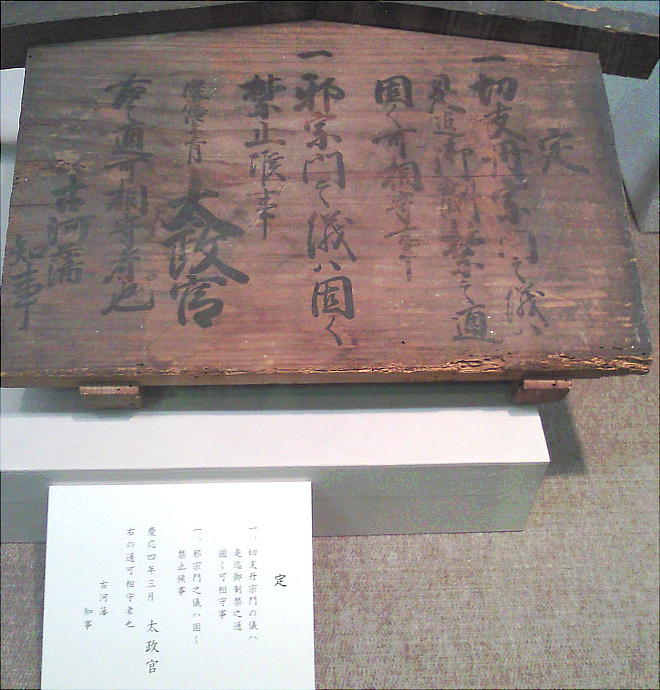 定
一切支丹宗門之儀ハ
是迄御制禁之通
固く可相守事
一邪宗門之儀ハ固く
禁止候事
慶應四年三月
太政官
右之通可相守者也
古河藩
知事
定
一、切支丹宗門の儀ハ
是迄御制禁之通
固く可相守事
一、邪宗門之儀ハ固く
禁止候事
慶応四年三月 太政官
右の通可相守者也
古河藩
知事